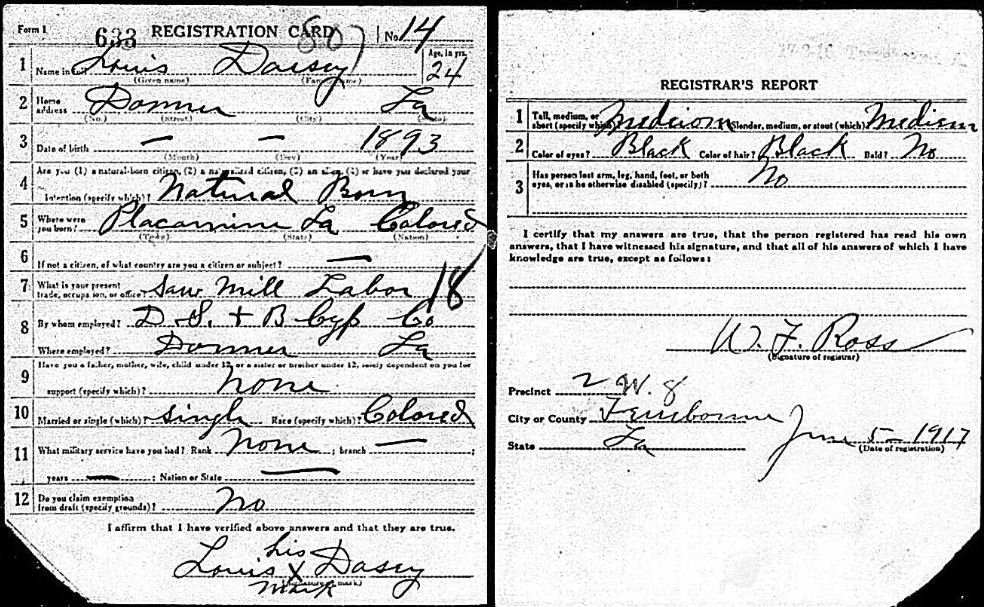 Form 1 633 REGISTRATION CARD No. 14
1 Name in full Louis Dassey Age, in yrs. 24
(Given name) (Family name)
2 Home address Donner La
(No.) (Street) (City) (State)
3 Date of birth — — 1893
(Month) (Day) (Year)
4 Are you (1) a natural-born citizen, (2) a naturalized citizen, (3) an alien, (4) or have you declared your
intention (specify which)? Natural Born
5 Where were you born? Placamine La Colored
(Town) (State) (Nation)
6 If not a citizen, of what country are you a citizen or subject? —
7 What is your present trade, occupation, or office? Saw Mill Labor 18
8 By whom employed? D. S. + B Cyp Co
Where employed? Donner La
9 Have you a father, mother, wife, child under 12, or a sister or brother under 12, solely dependent on you for
support (specify which)? None
10 Married or single (which)? Single Race (specify which)? Colored
11 What military service have you had? Rank None ; branch — ;
years — ; Nation or State —
12 Do you claim exemption from draft (specify grounds)? No
I affirm that I have verified above answers and that they are true.
his
Louis X Dassy
(Signature or mark)
mark
REGISTRAR'S REPORT
1 Tall, medium, or short (specify which)? Mediom Slender, medium, or stout (which)? Medium
2 Color of eyes? Black Color of hair? Black Bald? No
3 Has person lost arm, leg, hand, foot, or both eyes, or is he otherwise disabled (specify)? No
I certify that my answers are true, that the person registered has read his own
answers, that I have witnessed his signature, and that all of his answers of which I have
knowledge are true, except as follows:
W. F. Ross
(Signature of registrar)
Precinct 2 W. 8
City or County Terrebonne
State La June 5 - 1917
(Date of registration)